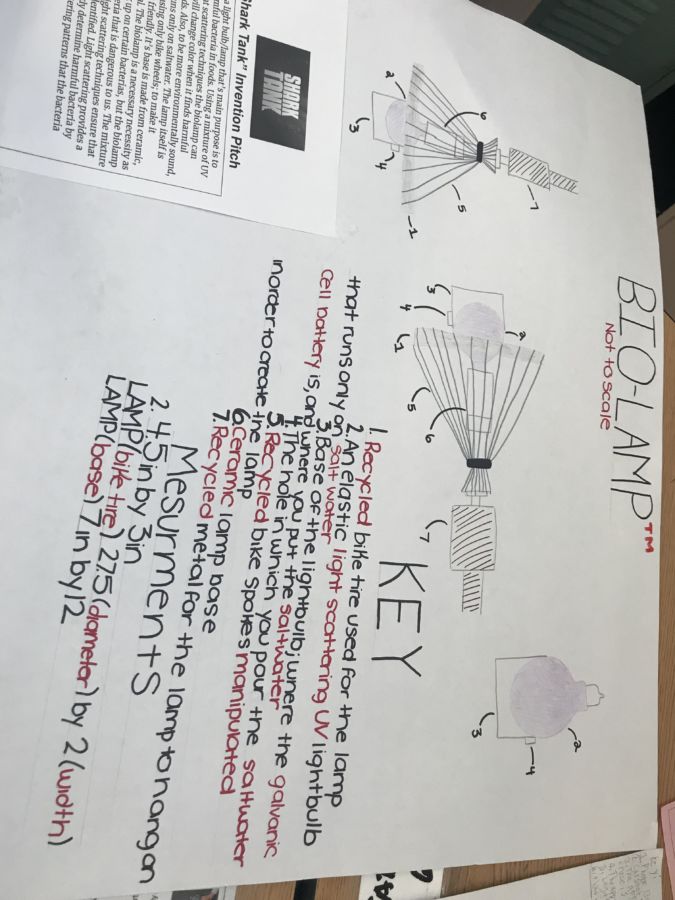 BIO-LAMP™
Not to scale
2
6
3
4
5
1
7
3
4
1
2
5
6
7
2
4
3
KEY
1. Recycled bike tire used for the lamp
2. An elastic light scattering UV lightbulb
that runs only on salt water
3. Base of the lightbulb; where the galvanic
cell battery is, and where you put the saltwater
4. The hole in which you pour the saltwater
5. Recycled bike spokes manipulated
inorder to create the lamp
6. Ceramic lamp base
7. Recycled metal for the lamp to hang on
Mesurments
2. 4.5in by 3in
LAMP(bike tire) 275(diameter) by 2(width)
LAMP(base) 7in by 12
Shark Tank" Invention Pitch
SHARK
TANK
a light bulb/lamp that's main purpose is to
bacteria in foods. Using a mixture of UV
scattering techniques the biolamp can
change color when it finds harmful
Also, to be more environmentally sound,
only on saltwater. The lamp itself is
using only bike wheels; to make it
friendly. It's base is made from ceramic,
The biolamp is a necessary necessity as
up on certain bacterias, but the biolamp
that is dangerous to us. The mixture
light scattering techniques ensure that
Light scattering provides a
determine harmful bacteria by
patterns that the bacteria